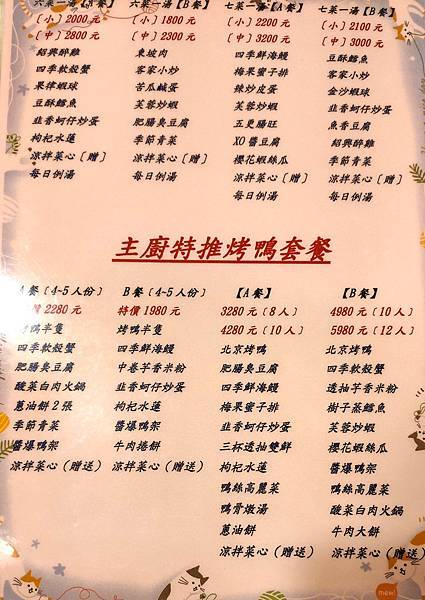 六菜一湯【A餐】
〔小〕2000元
〔中〕2800元
紹興醉雞
四季軟殼蟹
果律蝦球
豆酥鱈魚
韭香蚵仔炒蛋
枸杞水蓮
涼拌菜心〔贈〕
每日例湯
六菜一湯【B餐】
〔小〕1800元
〔中〕2600元
東坡肉
客家小炒
苦瓜鹹蛋
芙蓉炒蝦
肥腸臭豆腐
季節青菜
涼拌菜心〔贈〕
每日例湯
七菜一湯【A餐】
〔小〕2200元
〔中〕3200元
四季鮮海鰻
梅果蜜子排
辣炒皮蛋
芙蓉炒蝦
五更腸旺
XO醬豆腐
櫻花蝦絲瓜
涼拌菜心〔贈〕
每日例湯
七菜一湯【B餐】
〔小〕2100元
〔中〕3000元
豆酥鱈魚
客家小炒
金沙蝦球
韭香蚵仔炒蛋
魚香豆腐
紹興醉雞
季節青菜
涼拌菜心〔贈〕
每日例湯
主廚特推烤鴨套餐
A餐〔4~5人份〕
價2280元
烤鴨半隻
四季軟殼蟹
肥腸臭豆腐
酸菜白肉火鍋
蔥油餅2張
季節青菜
醬爆鴨架
涼拌菜心（贈送）
B餐〔4~5人份〕
特價1980元
烤鴨半隻
四季鮮海鰻
中卷芋香米粉
韭香蚵仔炒蛋
枸杞水蓮
醬爆鴨架
牛肉捲餅
涼拌菜心（贈送）
【A餐】
3280元〔8人〕
4280元〔10人〕
北京烤鴨
肥腸臭豆腐
四季鮮海鰻
梅果蜜子排
韭香蚵仔炒蛋
三杯透抽雙鮮
枸杞水蓮
鴨絲高麗菜
鴨骨燉湯
蔥油餅
涼拌菜心（贈送）
【B餐】
4980元〔10人〕
5980元〔12人〕
北京烤鴨
四季軟殼蟹
透抽芋香米粉
樹子蒸鱈魚
芙蓉炒蝦
櫻花蝦絲瓜
醬爆鴨架
鴨絲高麗菜
酸菜白肉火鍋
牛肉大餅
涼拌菜心（贈送）
mew!